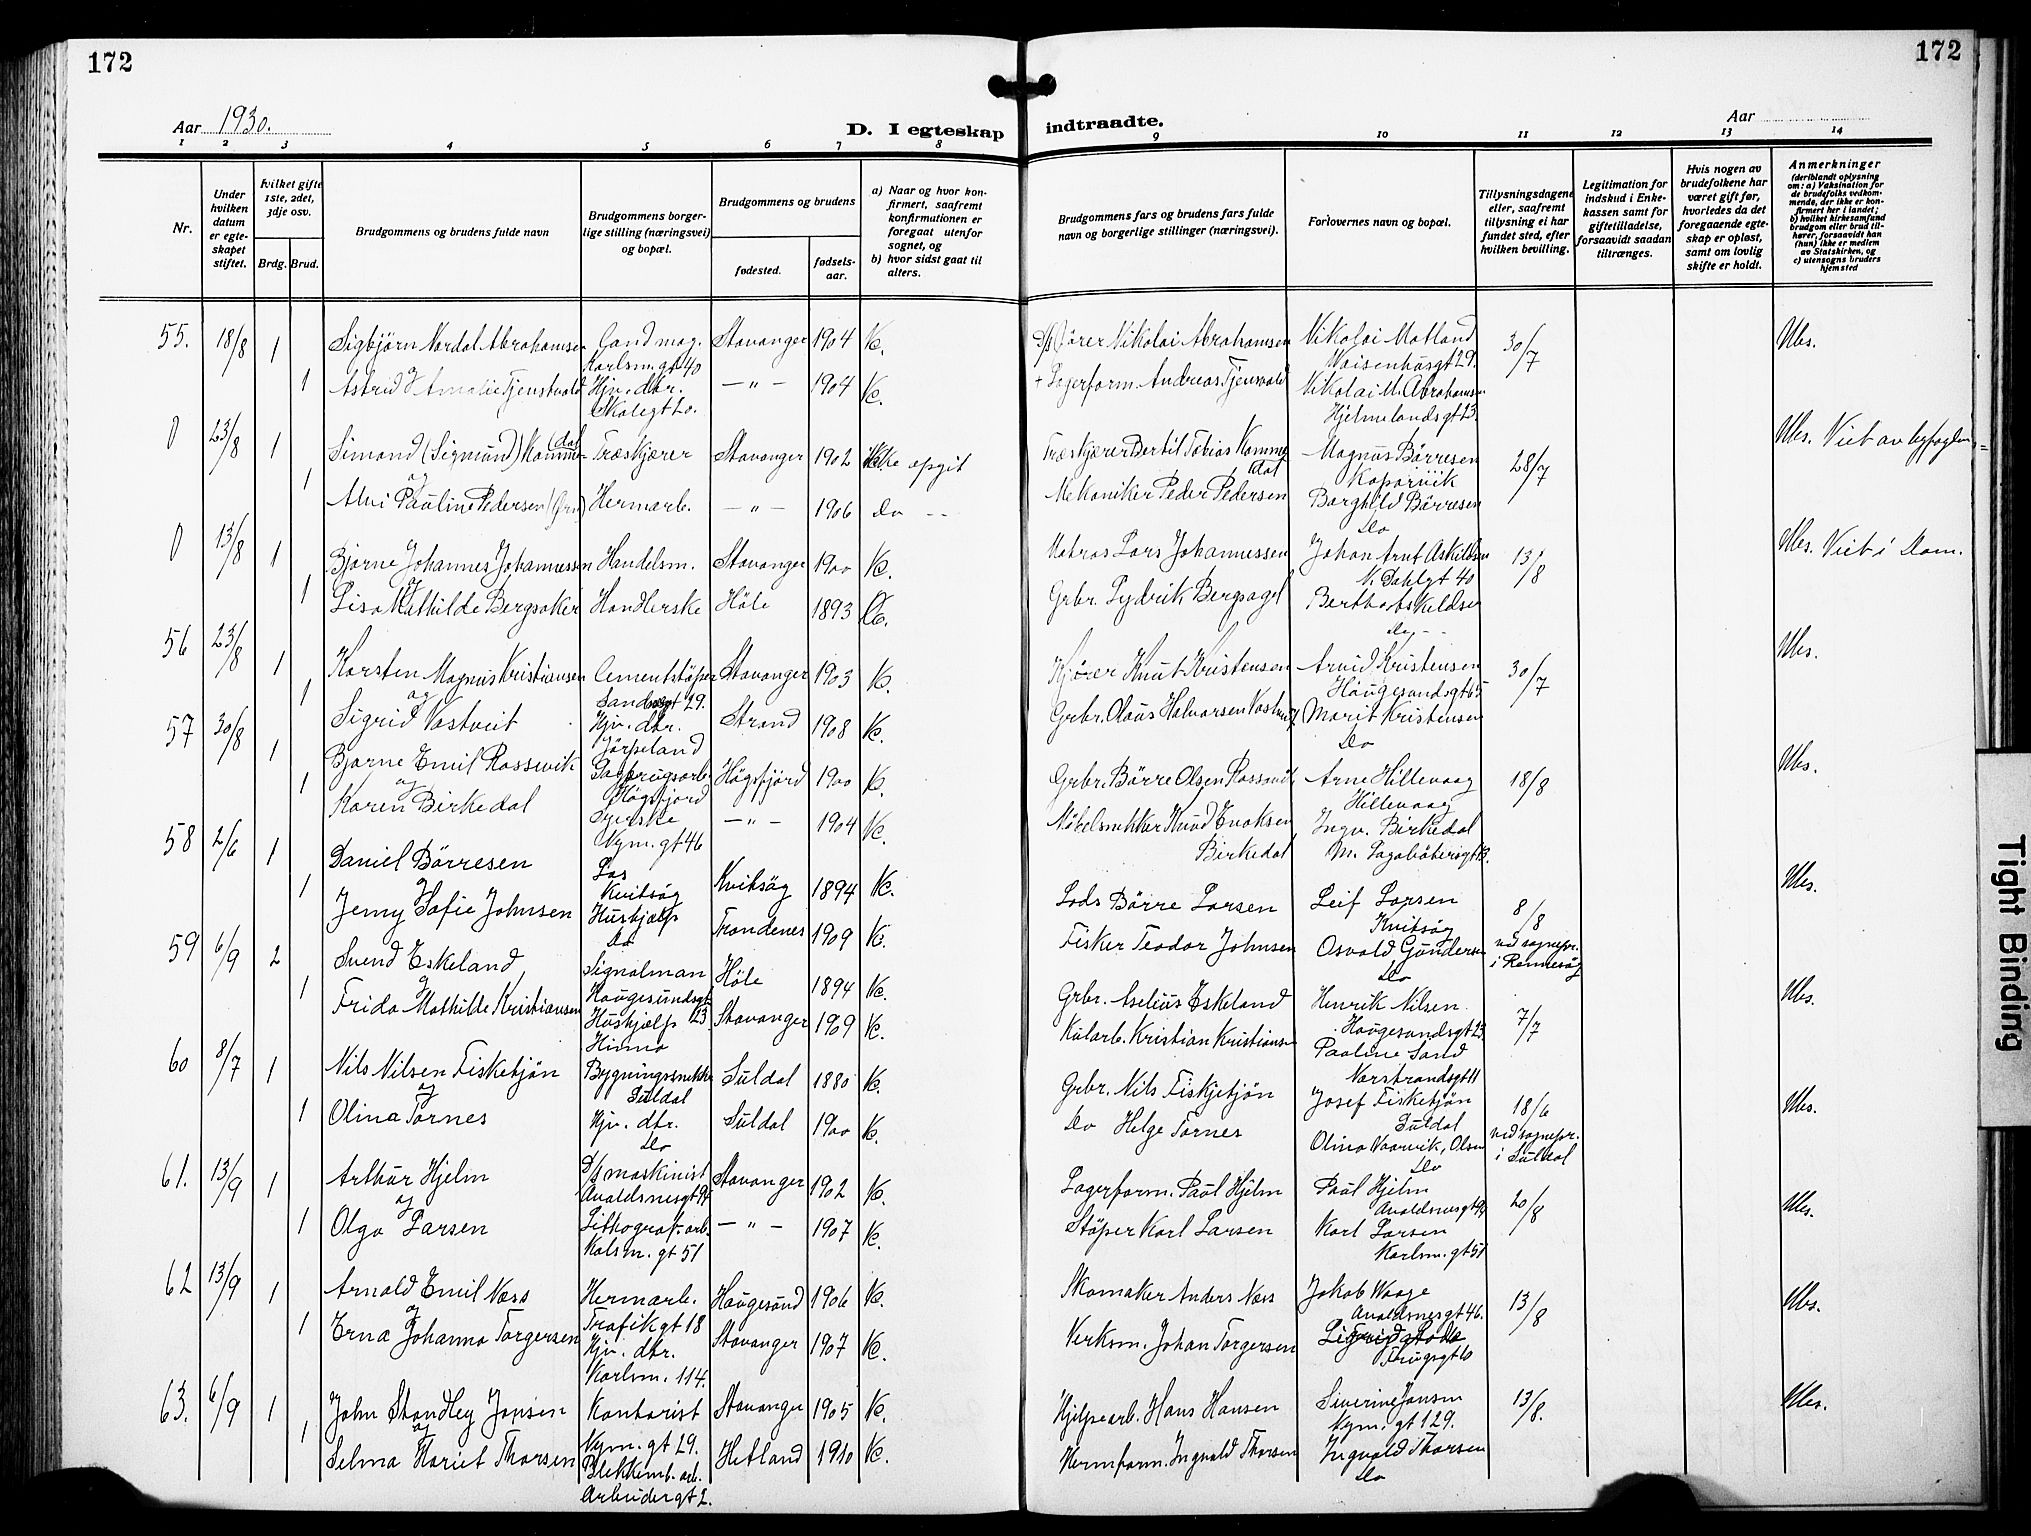 172
172
Aar 1930.
D. I egteskap indtraadte.
Aar
1 2 3 4 5 6 7 8 9 10 11 12 13 14
Nr.
Under hvilken datum er egteskapet stiftet.
Hvilket gifte 1ste, 2det, 3dje osv.
Brdg. Brud.
Brudgommens og brudens fulde navn
Brudgommens borgerlige stilling (næringsvei) og bopæl.
Brudgommens og brudens
fødested.
fødselsaar.
a) Naar og hvor konfirmert, saafremt konfirmationen er foregaat utenfor sognet, og
b) hvor sidst gaat til alters.
Brudgommens fars og brudens fars fulde navn og borgerlige stillinger (næringsvei).
Forlovernes navn og bopæl.
Tillysningsdagene eller, saafremt tillysning ei har fundet sted, efter hvilken bevilling.
Legitimation for indskud i Enkekassen samt for giftetilladelse, forsaavidt saadan tiltrænges.
Hvis nogen av brudefolkene har været gift før, hvorledes da det foregaaende egteskap er opløst, samt om lovlig skifte er holdt.
Anmerkninger (deriblandt oplysning om: a) Vaksination for de brudefolks vedkommende, der ikke er konfirmert her i landet; b) hvilket kirkesamfund brudgom eller brud tilhører, forsaavidt han (hun) ikke er medlem av Statskirken, og c) utensogns bruders hjemsted
55. 18/8 1 Sigbjörn Nordal Abrahamsen Gand mag. Karlsm. gt 40 Stavanger 1904 K. Nikolai Abrahamsen Nikolai Motland Waisenhusgt 29. 30/7
1 Astrid Amalie Tjenstvold Hjv. dtr. Skolegt 20. —"— 1904 K. + Lagerform. Andreas Tjensvold Nikolai M. Abrahamsen Hjelmelandsgt 23.
0 23/8 1 Simond (Sigmund) Kommedal Træskjærer Stavanger 1902 Ikke opgit Træskjærer Bertil Tobias Kommedal Magnus Börresen Kopervik 28/7
1 og Alvi Pauline Pedersen Hermarb. —"— 1906 do -- Mekaniker Peder Pedersen Borghild Börresen Do
0 13/8 1 Bjarne Johannes Johannessen Handelsm. Stavanger 1900 K. Matros Lars Johannessen Johan Arnt Askildsen N. Dahlgt 40 13/8 Viet i Dom.
1 Lisa Mathilde Bergsaker Handlerske Höle 1893 Grbr. Bergsagel Bertha Askildsen Do --
56 23/8 1 Karsten Magnus Kristiansen Cementstöper Stavanger 1903 K. Kjörer Knut Kristensen Arvid Kristensen Haugesundsgt 65 30/7
1 og Sigrid Vostveit Hjv. dtr. Jörpeland Strand 1908 K. Grbr. Olaus Halvorsen Marit Kristensen Do
57 30/8 1 Bjarne Emil Rossevik Högsfjord Högsfjord 1900 K. Grbr. Börre Olsen Rossevik Arne Hillevaag Hillevaag 18/8
1 og Karen Birkedal Syerske Nym. gt 46 —"— 1904 K. Möbelsnekker Knud Enoksen Birkedal Ingv. Birkedal
58 2/6 1 Daniel Börresen Los Kvitsöy Kvitsöy 1894 K. Lods Börre Larsen Leif Larsen Kvitsöy 8/8
1 Jenny Sofie Johnsen Hushjælp Do Trondenes 1909 K. Fisker Teodor Johnsen Osvald Gundersen Do ved sognepr. i Rennesöy
59 6/9 2 Svend Eskeland Signalman Haugesundsgt 23 Höle 1894 K. Grbr. Aselius Eskeland Henrik Nilsen Haugesundsgt 23 7/7
1 Frida Mathilde Kristiansen Hushjælp Hinna Stavanger 1909 K. Kularb. Kristian Kristiansen Pauline Sand Nærstrandsgt 11
60 8/7 1 Nils Nilsen Fisketjön Bygningssnekker Suldal Suldal 1880 K. Grbr. Nils Fiskjetjön Josef Fisketjön Suldal 18/6
1 og Olina Tornes Hjv. dtr. Do Suldal 1900 K. Do Helge Tornes Olina Vaarvik, Olsen Do ved sognepr. i Suldal
61. 13/9 1 Arthur Hjelm D/s maskinist Avaldsnesgt 94 Stavanger 1902 K. Lagerform. Paul Hjelm Paul Hjelm Avaldsnesgt 94 20/8
1 og Olga Larsen Lithograf. arb. Kalsm. gt 51 —"— 1907 K. Stöper Karl Larsen Karl Larsen Karlsm. gt 51
62 13/9 1 Arnold Emil Næss Hermarb. Trafikgt 18 Haugesund 1906 K. Skomaker Anders Næss Jakob Waage Avaldsnesgt 46. 13/8
1 og Erna Johanna Torgersen Hjv. dtr. Karlsm. 114. Stavanger 1907 K. Verksm. Johan Torgersen
63. 6/9 1 John Standley Jansen Kontorist Nym. gt 29. Stavanger 1905 K. Hjelpearb. Hans Hansen Siverine Jansen Nym. gt 129. 13/8.
1 og Selma Hariet Thorsen Blekkemb. arb. Arbeidergt 2. Hetland 1910 K. Hermform. Ingvald Thorsen Ingvald Thorsen Do
Tight Binding